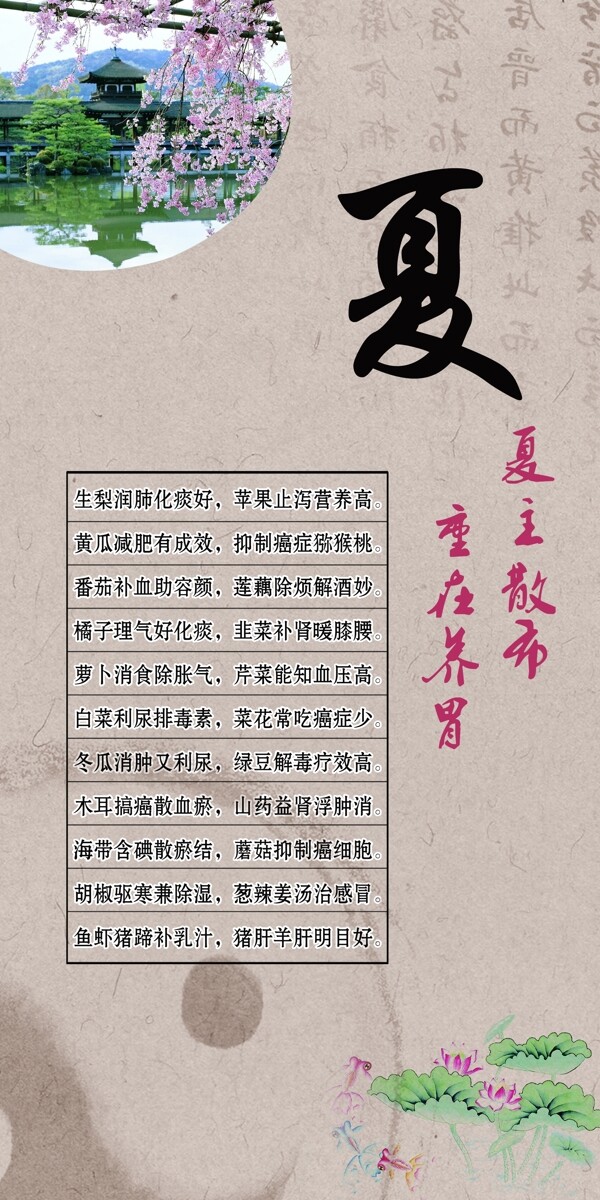 夏
夏主散布
重在养胃
生梨润肺化痰好，苹果止泻营养高。
黄瓜减肥有成效，抑制癌症猕猴桃。
番茄补血助容颜，莲藕除烦解酒妙。
橘子理气好化痰，韭菜补肾暖膝腰。
萝卜消食除胀气，芹菜能知血压高。
白菜利尿排毒素，菜花常吃癌症少。
冬瓜消肿又利尿，绿豆解毒疗效高。
木耳搞癌散血瘀，山药益肾浮肿消。
海带含碘散瘀结，蘑菇抑制癌细胞。
胡椒驱寒兼除湿，葱辣姜汤治感冒。
鱼虾猪蹄补乳汁，猪肝羊肝明目好。